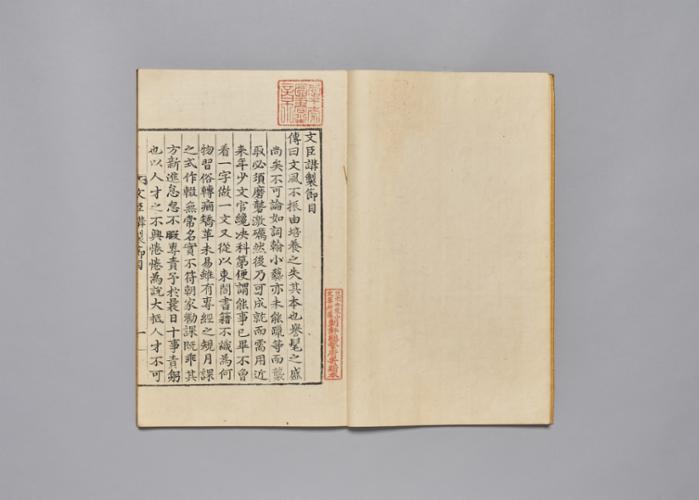 文臣講製節目
傳曰文風不振由培養之失其本也譽髦之盛
尚矣不可論如詞翰小藝亦未能躐等而襲
取必須磨礱激礪然後乃可成就而需用近
來年少文官纔决科第便謂能事已畢不曾
看一字做一文又從以束閣書籍不識爲何
物習俗轉痼矯革未易雖有專經之規月課
之式作輟無常名實不符朝家勸課旣乖其
方新進怠忽不暇專責予於曩日十事責躬
也以人才之不興惓惓爲說大抵人才不可
文臣講製節目 一